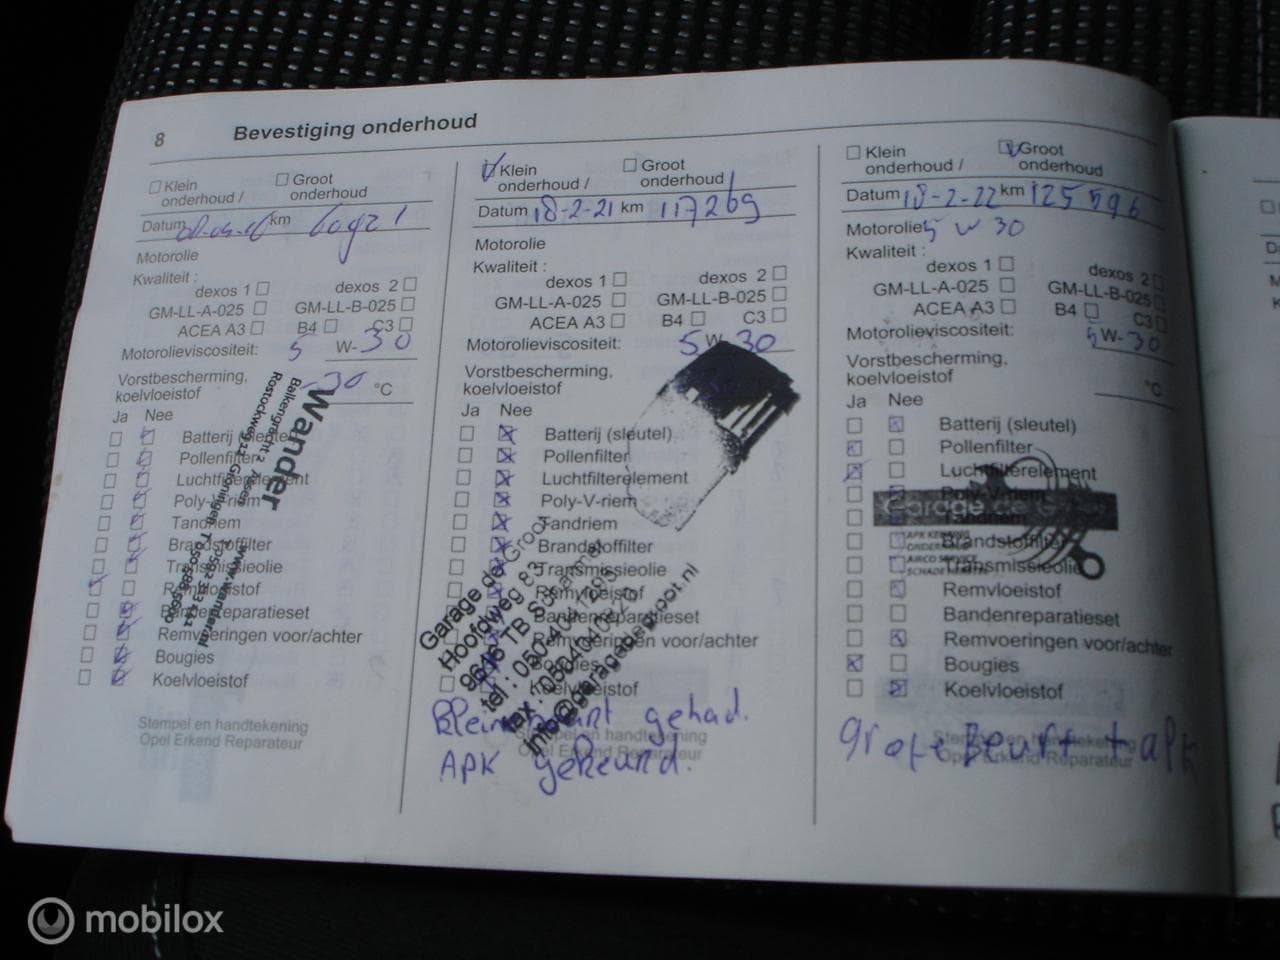 8 Bevestiging onderhoud
Klein onderhoud /
Groot onderhoud
Datum km
Motorolie
Kwaliteit :
dexos 1 dexos 2
GM-LL-A-025 GM-LL-B-025
ACEA A3 B4 C3
Motorolieviscositeit: 5 W-30
Vorstbescherming,
koelvloeistof -30 °C
Ja Nee
Batterij
Pollenfilter
Luchtfilterelement
Poly-V-riem
Tandriem
Brandstoffilter
Transmissieolie
Remvloeistof
Bandenreparatieset
Remvoeringen voor/achter
Bougies
Koelvloeistof
Stempel en handtekening
Opel Erkend Reparateur
Wander
www.wander.nl
Klein onderhoud /
Groot onderhoud
Datum 18-2-21 km 117269
Motorolie
Kwaliteit :
dexos 1 dexos 2
GM-LL-A-025 GM-LL-B-025
ACEA A3 B4 C3
Motorolieviscositeit: 5 W-30
Vorstbescherming,
koelvloeistof
Ja Nee
Batterij (sleutel)
Pollenfilter
Luchtfilterelement
Poly-V-riem
Tandriem
Brandstoffilter
Transmissieolie
Remvloeistof
Bandenreparatieset
Remvoeringen voor/achter
Bougies
Koelvloeistof
Garage de Groot
Hoofdweg 83
info@garagedegroot.nl
gehad.
Stempel en handtekening
Opel Erkend Reparateur
APK gekeurd.
Klein onderhoud /
Groot onderhoud
Datum 18-2-22 km 125596
Motorolie 5 W 30
Kwaliteit :
dexos 1 dexos 2
GM-LL-A-025 GM-LL-B-025
ACEA A3 B4 C3
Motorolieviscositeit: 5 W-30
Vorstbescherming,
koelvloeistof °C
Ja Nee
Batterij (sleutel)
Pollenfilter
Luchtfilterelement
Poly-V-riem
Tandriem
Brandstoffilter
Transmissieolie
Remvloeistof
Bandenreparatieset
Remvoeringen voor/achter
Bougies
Koelvloeistof
Garage de Groot
grote Beurt + apk
Stempel en handtekening
Opel Erkend Reparateur
mobilox